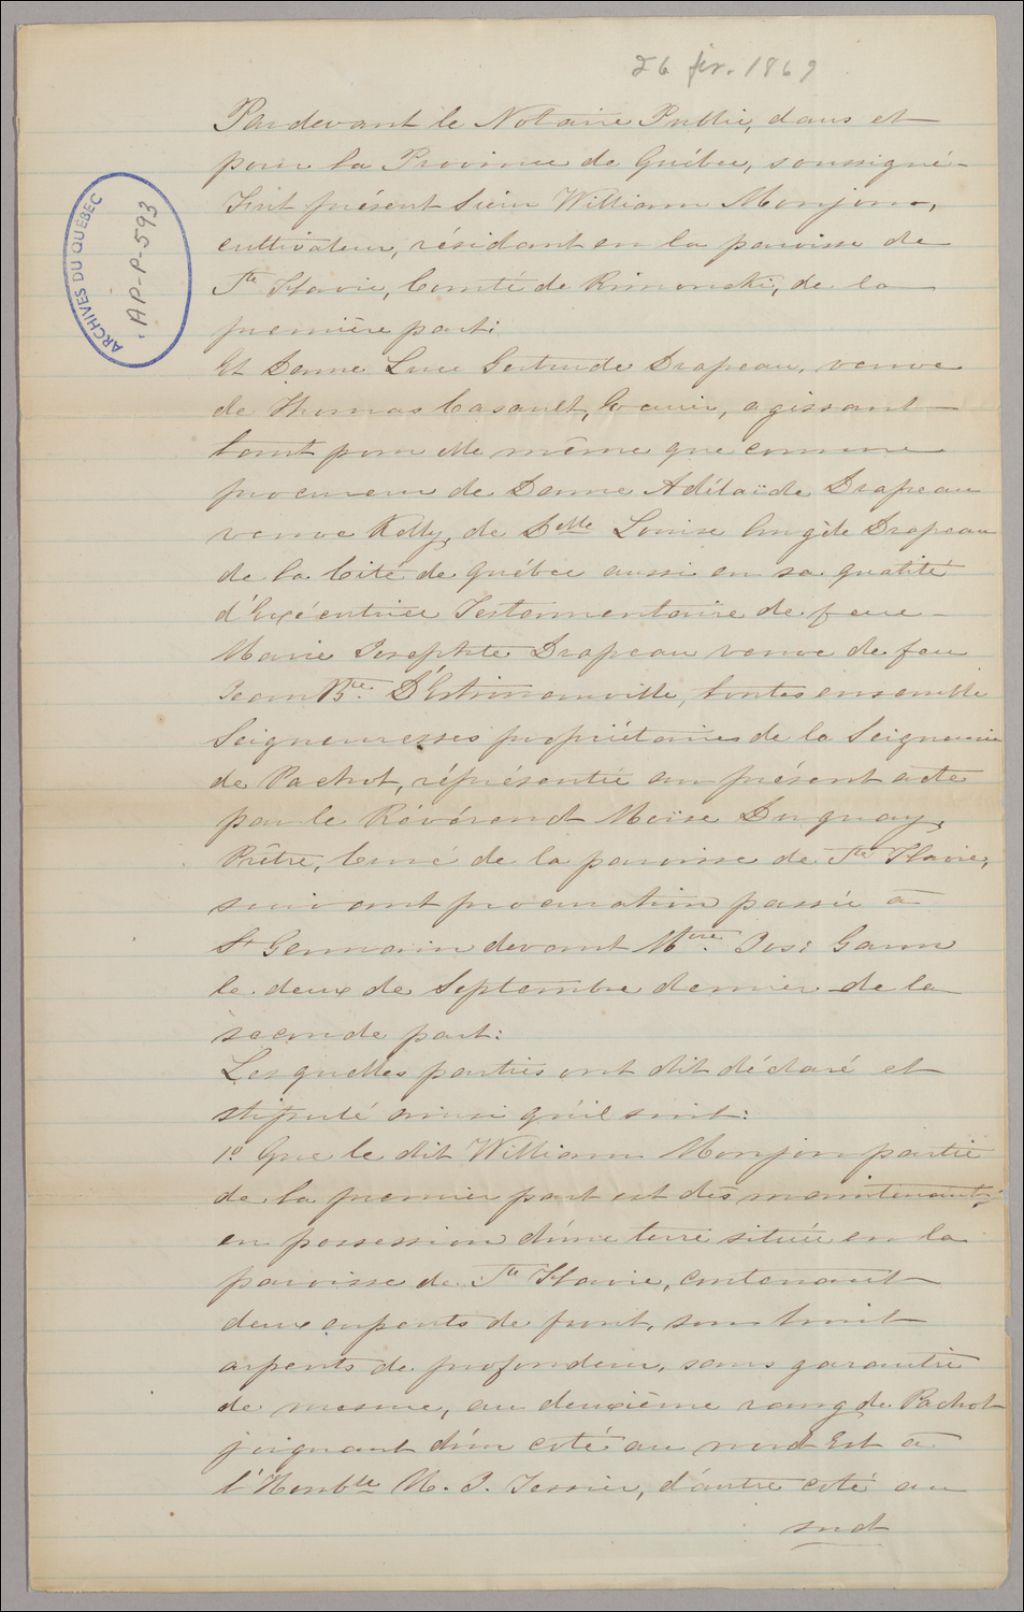 26 fév. 1869
ARCHIVES DU QUÉBEC
AP-P-593
Pardevant le Notaire Public, dans et
pour la Province de Québec, soussigné
Fut présent Sieur William Monjon,
cultivateur, résidant en la paroisse de
Ste Flavie, Comté de Rimouski, de la
première part:
Et Dame Luce Gertrude Drapeau, veuve
de Thomas Casault, Ecuier, agissant
tant pour elle même que comme
procureur de Dame Adélaïde Drapeau
veuve Kelly, de Delle Louise Angèle Drapeau
de la Cité de Québec aussi en sa qualité
d'Exécutrice Testamentaire de feue
Marie Josephte Drapeau veuve de feu
Jean Bte. D'Estimauville, toutes ensemble
Seigneuresses propriétaires de la Seigneurie
de Pachot, réprésentée au présent acte
par le Révérend Moïse Duguay,
Prêtre, Curé de la paroisse de Ste Flavie,
suivant procuration passée à
St Germain devant Mtre. Jos: Garon
le deux de Septembre dernier de la
seconde part:
Lesquelles parties ont dit déclaré et
stipulé ainsi qu'il suit:
1o. Que le dit William Monjon partie
de la premier part est dès maintenant
en possession d'une terre située en la
paroisse de Ste Flavie, contenant
deux arpents de front, sur huit
arpents de profondeur, sans garantie
de mesure, au deuxième rang de Pachot
joignant d'un coté au nord Est à
l'Honble U. J. Tessier, d'autre coté au
sud